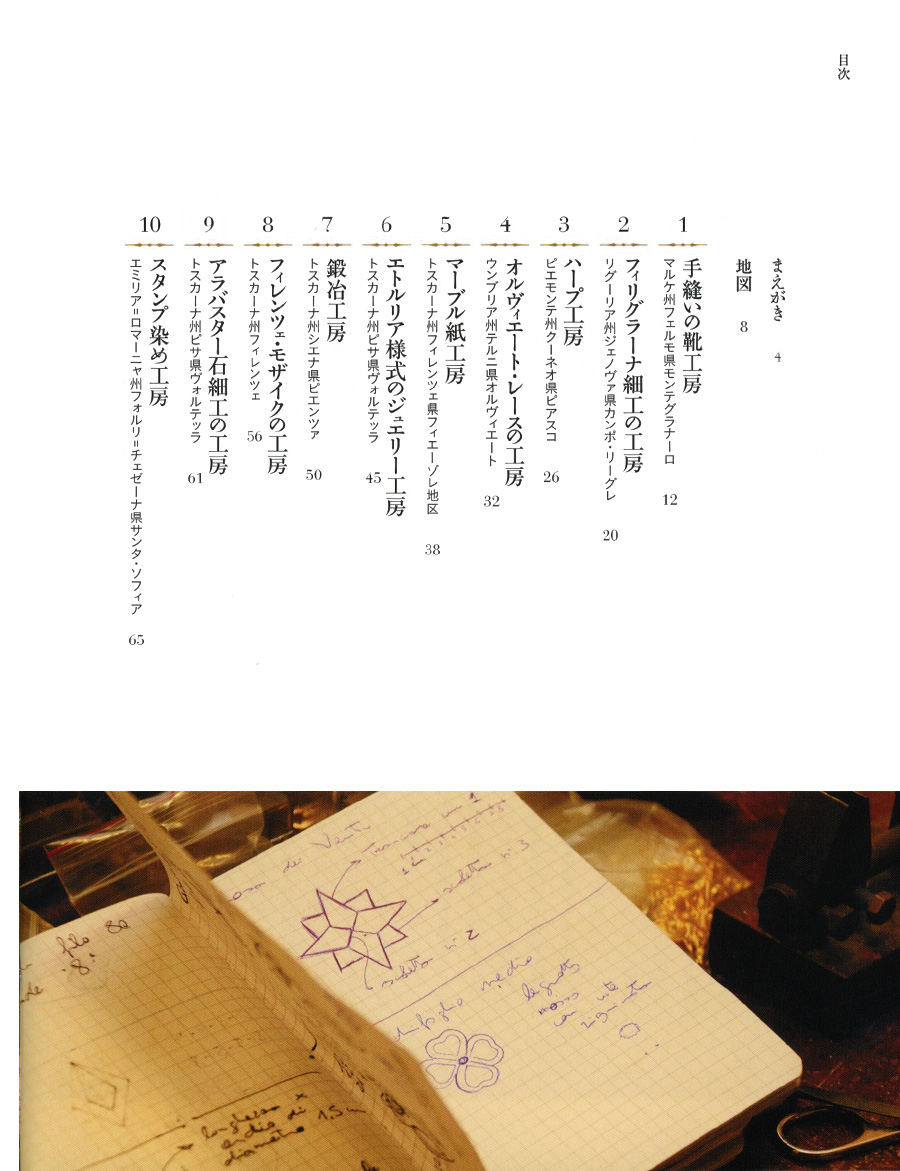 目次
まえがき 4
地図 8
1
手縫いの靴工房
マルケ州フェルモ県モンテグラナーロ 12
2
フィリグラーナ細工の工房
リグーリア州ジェノヴァ県カンポ・リーグレ 20
3
ハープ工房
ピエモンテ州クーネオ県ピアスコ 26
4
オルヴィエート・レースの工房
ウンブリア州テルニ県オルヴィエート 32
5
マーブル紙工房
トスカーナ州フィレンツェ県フィエーゾレ地区 38
6
エトルリア様式のジュエリー工房
トスカーナ州ピサ県ヴォルテッラ 45
7
鍛冶工房
トスカーナ州シエナ県ピエンツァ 50
8
フィレンツェ・モザイクの工房
トスカーナ州フィレンツェ 56
9
アラバスター石細工の工房
トスカーナ州ピサ県ヴォルテッラ 61
10
スタンプ染め工房
エミリア＝ロマーニャ州フォルリ＝チェゼーナ県サンタ・ソフィア 65
dei Venti
n. 3
n. 2
filo 80
diametro 1,5 cm